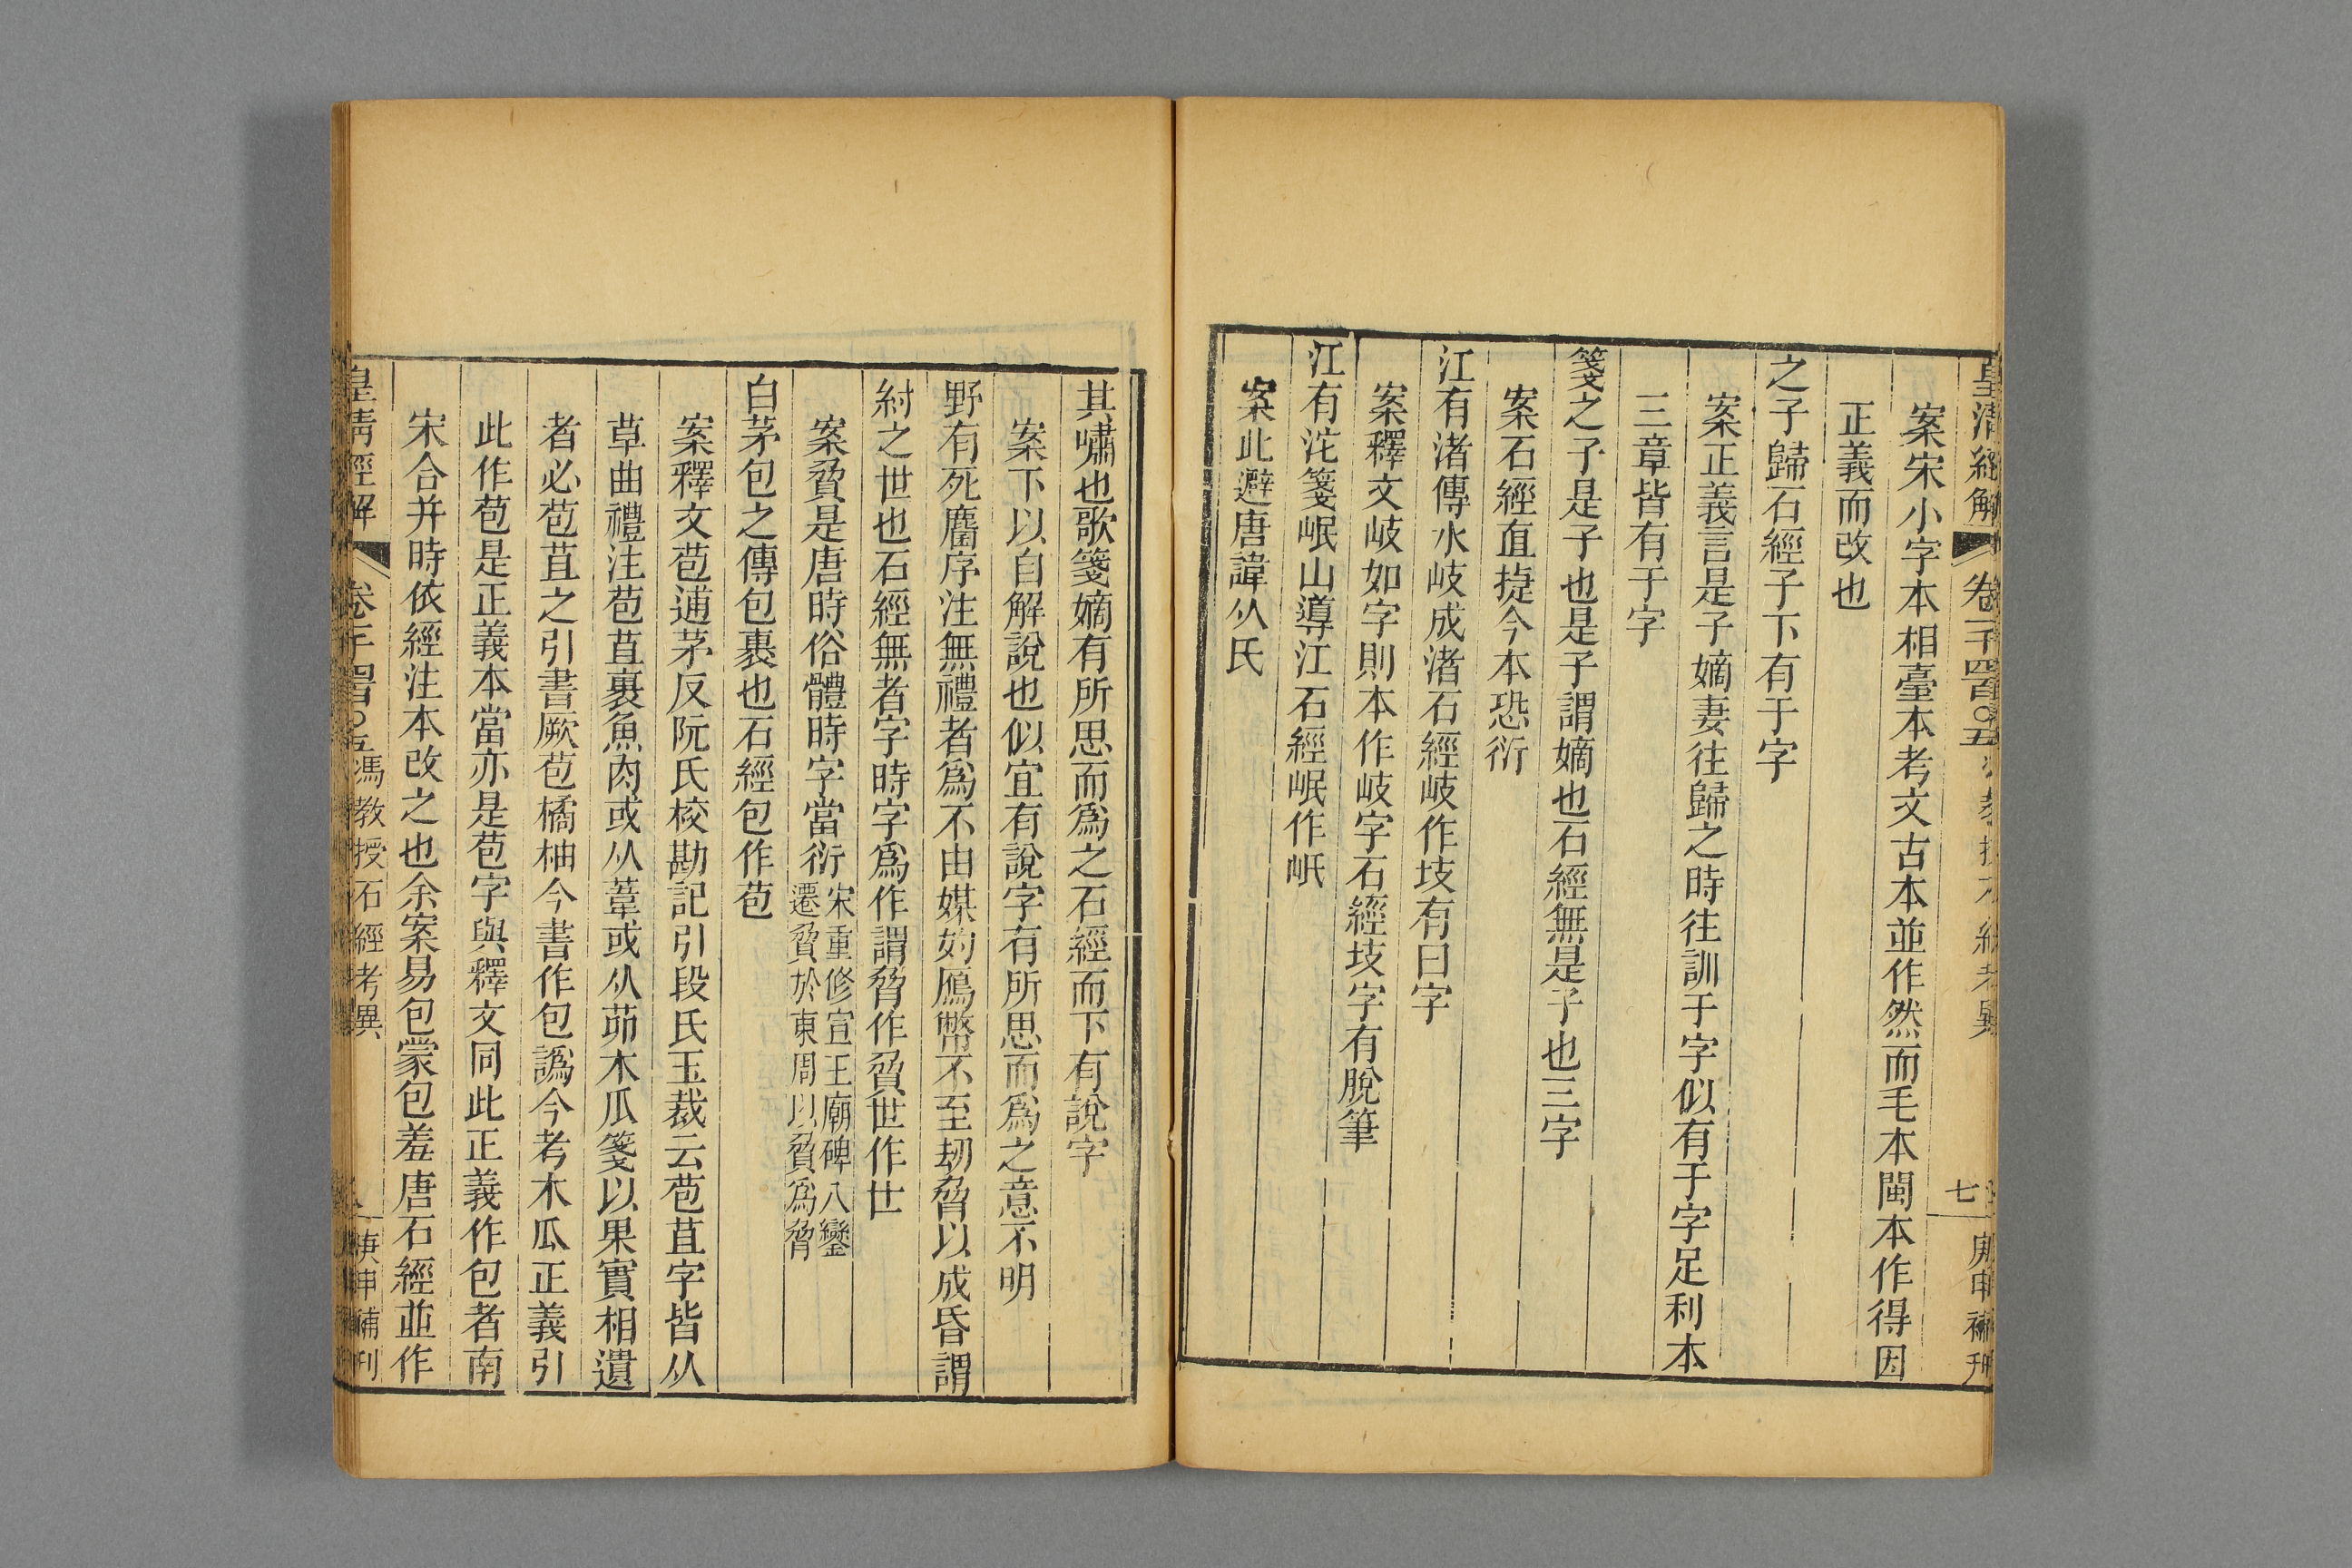 皇清經解 卷一千四百〇五 七 庚申補刊
案宋小字本相臺本考文古本並作然而毛本閩本作得因
正義而改也
之子歸石經子下有于字
案正義言是子嫡妻往歸之時往訓于字似有于字足利本
三章皆有于字
箋之子是子也是子謂嫡也石經無是子也三字
案石經直㨗今本恐衍
江有渚傳水岐成渚石經岐作㞿有曰字
案釋文岐如字則本作岐字石經㞿字有脫筆
江有沱箋岷山導江石經岷作岻
案此避唐諱从氏
其嘯也歌箋嫡有所思而爲之石經而下有說字
案下以自解說也似宜有說字有所思而爲之意不明
野有死麕序注無禮者爲不由媒妁鴈幣不至刼脅以成昏謂
紂之世也石經無者字時字爲作謂脅作㑞世作丗
案㑞是唐時俗體時字當衍宋重修宣王廟碑八鑾
遷㑞於東周以㑞爲脅
白茅包之傳包裹也石經包作苞
案釋文苞逋茅反阮氏校勘記引段氏玉裁云苞苴字皆从
草曲禮注苞苴裹魚肉或从葦或从茆木瓜箋以果實相遺
者必苞苴之引書厥苞橘柚今書作包譌今考木瓜正義引
此作苞是正義本當亦是苞字與釋文同此正義作包者南
宋合并時依經注本改之也余案易包蒙包羞唐石經並作
皇清經解 卷一千四百〇五 馮教授石經考異 八 庚申補刊